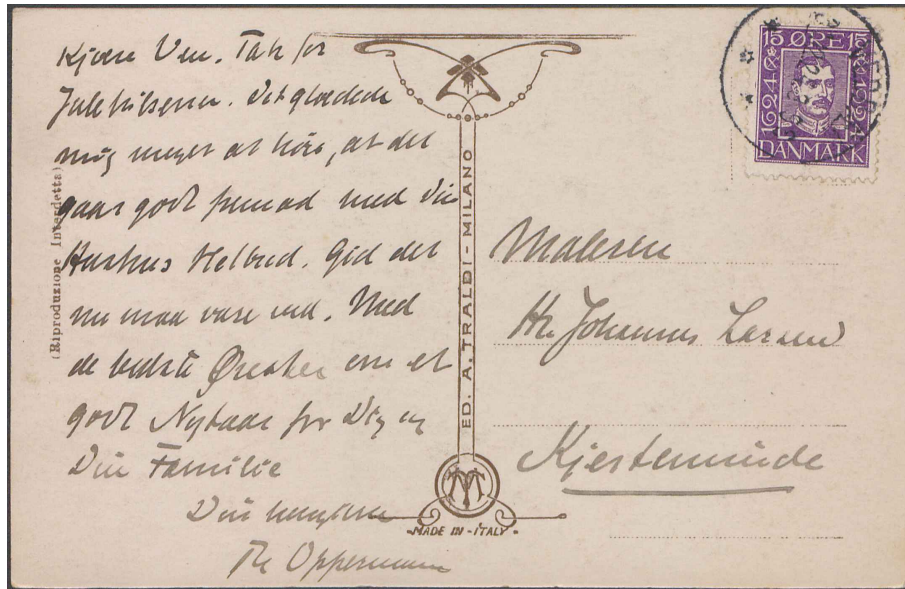 Kjære Ven. Tak for
Julehilsenen. Det glædede
mig meget at høre, at det
gaar godt fremad med Din
Hustrus Helbred. Gid det
nu maa vare ved. Med
de bedste Ønsker om et
godt Nytaar for Dig og
Din Familie
Din hengivne
Th Oppermann
(Riproduzione Interdetta)
ED. A. TRALDI - MILANO
MADE IN - ITALY -
15 ØRE 15
1624 1924
DANMARK
Maleren
Hr. Johannes Larsen
Kjerteminde